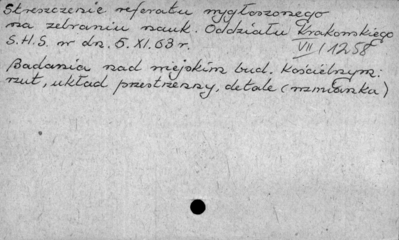 Streszczenie referatu wygłoszonego
na zebraniu nauk. Oddziału Krakowskiego
S.H.S. w dn. 5. XI. 63 r.
VII / 1258
Badania nad wiejskim bud. kościelnym:
rzut, układ przestrzenny, detale (wzmianka)